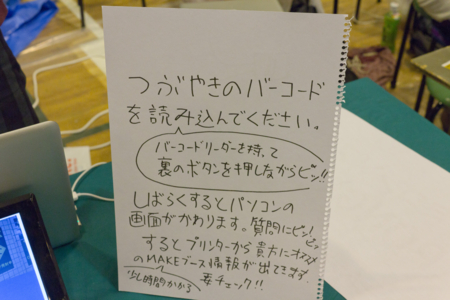 つぶやきのバーコード
を読み込んでください。
バーコードリーダーを持って
裏のボタンを押しながらピッ!!
しばらくするとパソコンの
画面がかわります。質問にピッ!ピッ
するとプリンターから貴方にオススメ
のMAKEブース情報が出てきます
少し時間かかる
要チェック!!